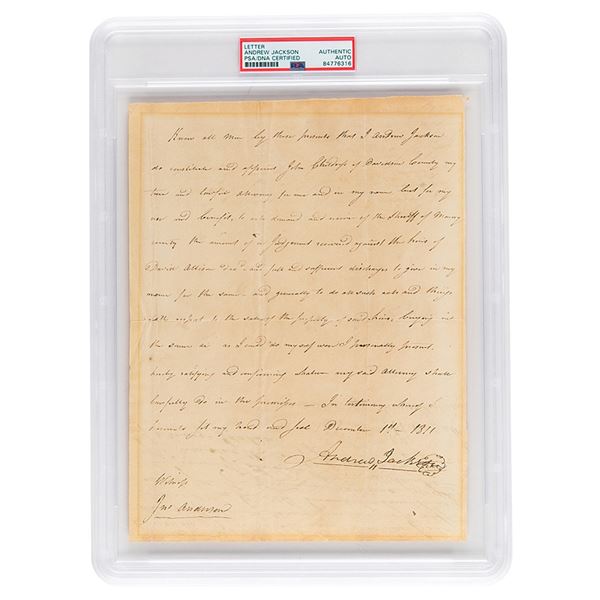 LETTER
ANDREW JACKSON
PSA/DNA CERTIFIED
AUTHENTIC
AUTO
84776316
Know all men by these presents that I Andrew Jackson
do constitute and appoint John Childress of Davidson County my
true and lawful attorney for me and in my name but for my
use and benefit, to ask demand and receive of the Sheriff of Maury
county the amount of a Judgement received against the heirs of
David Allison decd and full and sufficient discharges to give in my
name for the same - and generally to do all such acts and things
with respect to the sale of the property of said heirs, lying in
the same as I could do myself were I personally present
hereby ratifying and confirming whatever my said Attorney shall
lawfully do in the premises - In testimony whereof I
hereunto set my hand and seal December 1st - 1811
Andrew Jackson
Witness
Jno Anderson